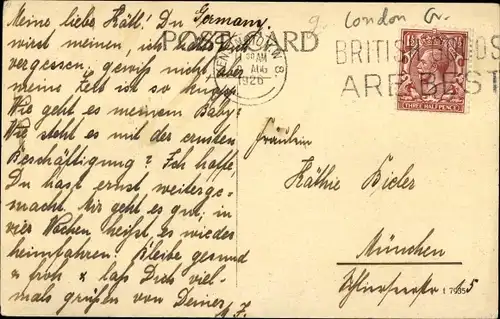 Meine liebe Käthl! Du
Germany.
wirst meinen, ich hab Dich
vergessen, gewiß nicht, aber
meine Zeit ist so knapp.
Wie geht es meinem Baby?
Wie steht es mit der ernsten
Beschäftigung? Ich hoffe,
Du hast ernst weiterge-
macht. Mir geht es gut; in
vier Wochen heißt es wieder
heimfahren. Bleibe gesund
u froh u laß Dich viel-
mals grüßen von Deiner
POST CARD
KENSINGTON W 8
AM
AUG
1926
g. London
BRITISH GOODS
ARE BEST
THREE HALFPENCE
Fräulein
Käthie Bieler
München
15